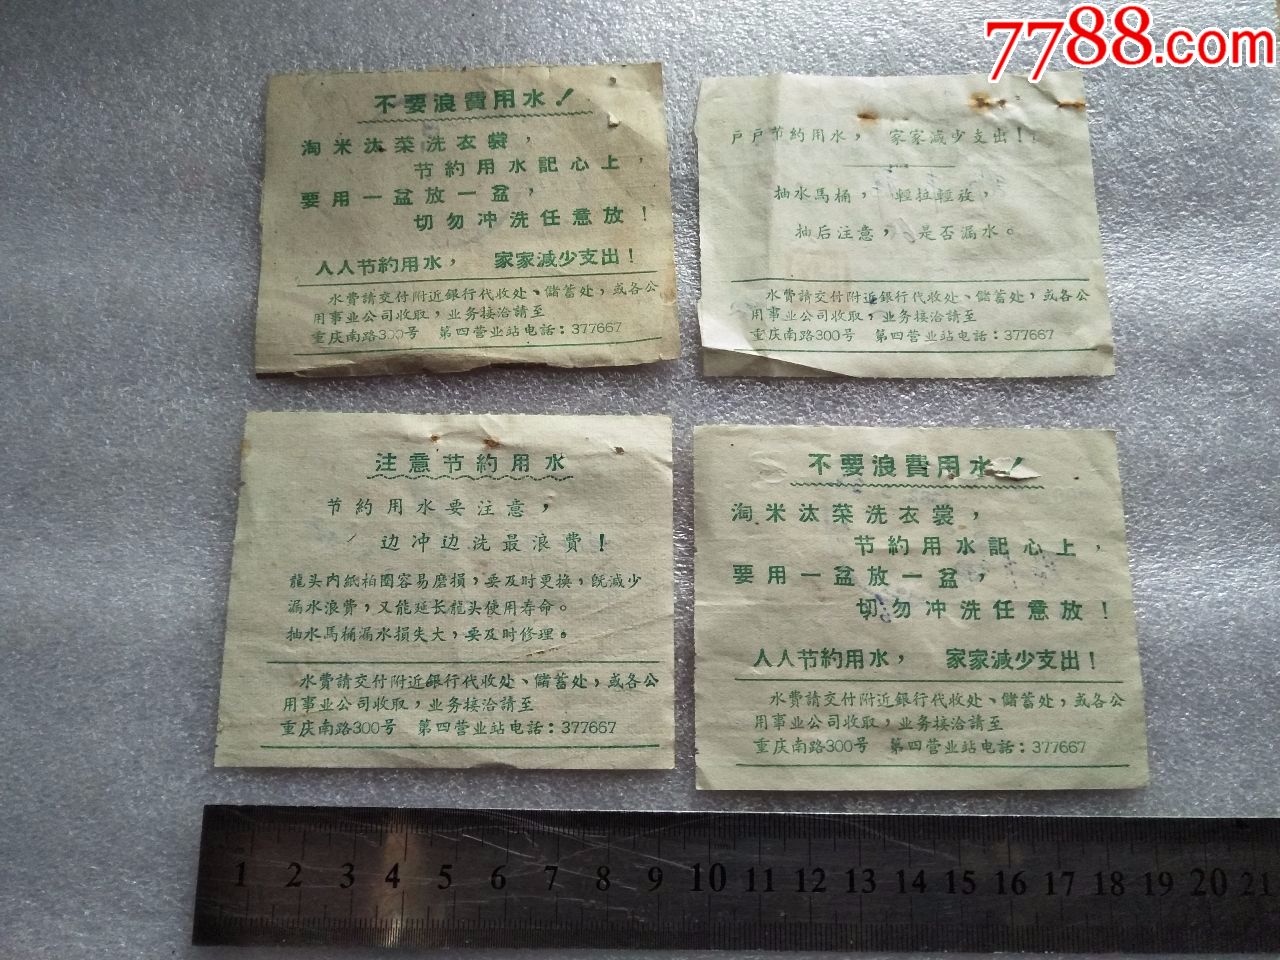 7788.com
不要浪費用水！
淘米汰菜洗衣裳，
节約用水記心上，
要用一盆放一盆，
切勿冲洗任意放！
人人节約用水， 家家減少支出！
水費請交付附近銀行代收处、儲蓄处，或各公
用事业公司收取，业务接洽請至
重庆南路300号 第四营业站电話：377667
戶戶节約用水， 家家減少支出！
抽水馬桶， 輕拉輕放，
抽后注意， 是否漏水。
水費請交付附近銀行代收处、儲蓄处，或各公
用事业公司收取，业务接洽請至
重庆南路300号 第四营业站电話：377667
注意节約用水
节約用水要注意，
边冲边洗最浪費！
龍头内紙柏圈容易磨損，要及时更換，既減少
漏水浪費，又能延长龍头使用寿命。
抽水馬桶漏水損失大，要及时修理。
水費請交付附近銀行代收处、儲蓄处，或各公
用事业公司收取，业务接洽請至
重庆南路300号 第四营业站电話：377667
不要浪費用水！
淘米汰菜洗衣裳，
节約用水記心上，
要用一盆放一盆，
切勿冲洗任意放！
人人节約用水， 家家減少支出！
水費請交付附近銀行代收处、儲蓄处，或各公
用事业公司收取，业务接洽請至
重庆南路300号 第四营业站电話：377667
1 2 3 4 5 6 7 8 9 10 11 12 13 14 15 16 17 18 19 20 21